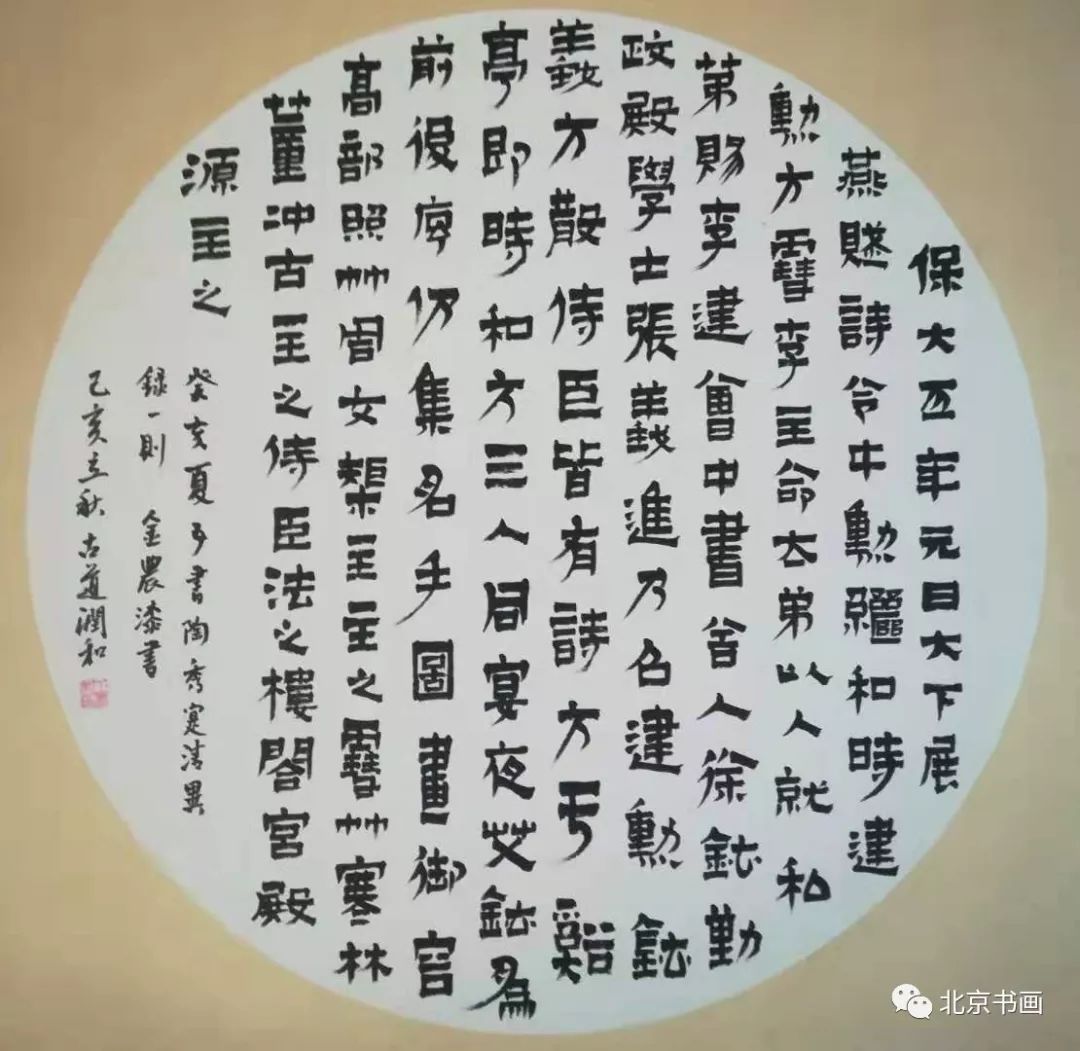 保大五年元日大下展
燕詩令中勳繼和時建
勳方雪李主命太弟以人就和
弟賜李建會中書舍人徐鉉勤
政殿學士張義進乃召建勳鉉
義方散侍臣皆有詩方于谿
亭即時和方三人同宴夜艾鉉為
前後序仍集名手圖畫御容
高部照艸周文榘主主之雪艸寒林
董沖古主之侍臣法之樓閣宮殿
源主之
癸亥夏予書陶秀寔清異
錄一則 金農漆書
己亥立秋古道潤和
北京书画